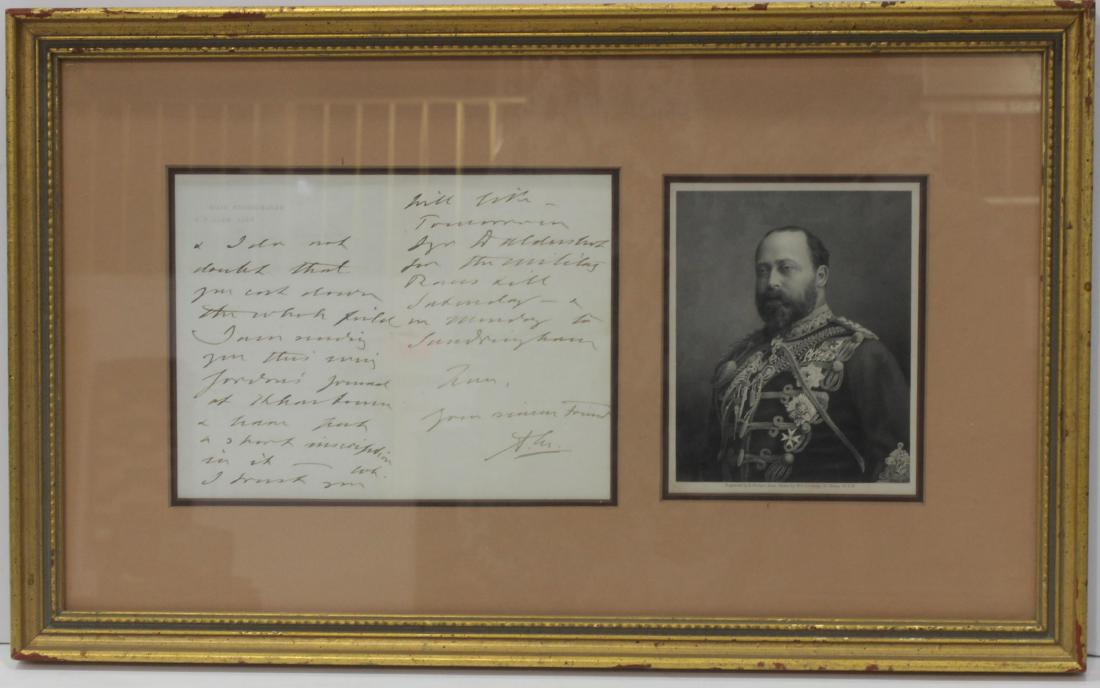 MARLBOROUGH HOUSE
PALL MALL. S.W.
& I do not
doubt that
you cut down
the whole field
I am sending
you this
Gordon's Journal
at Khartoum
& have put
a short inscription
in it — wh.
I trust you
will like –
Tomorrow
I go to Aldershot
for the Military
Races till
Saturday – &
on Monday to
Sandringham
From,
Your sincere Friend
A.E.